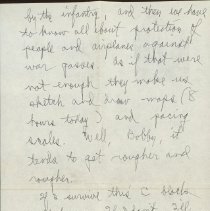 by the infantry, and they we have
to know all about protection of
people and airplanes against
war gasses. as if that were
not enough they make us
sketch and draw maps (8
hours today) and pacing
scales. Well, Bobby, it
tends to get rougher and
rougher.
If I survive this C block
I'll